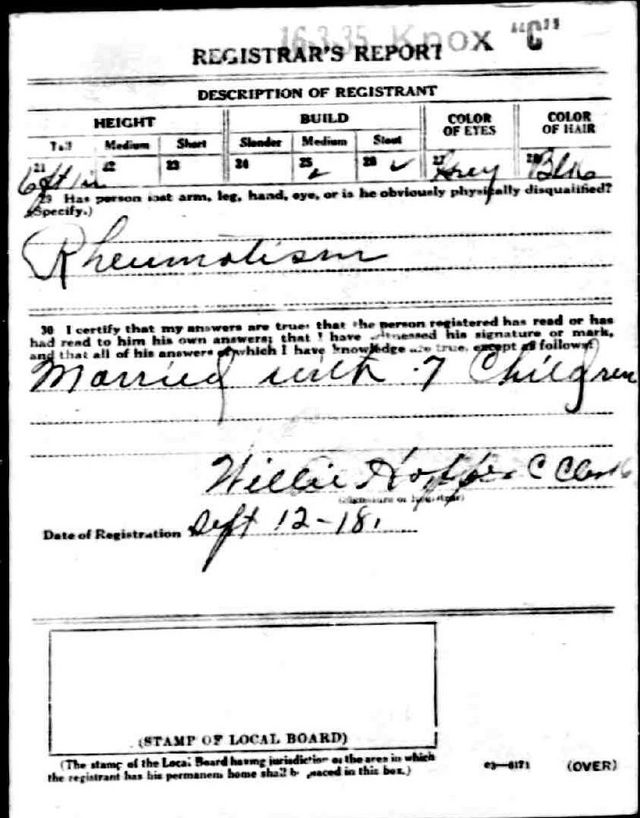 16-3-35 Knox "C"
REGISTRAR'S REPORT
DESCRIPTION OF REGISTRANT
HEIGHT BUILD COLOR OF EYES COLOR OF HAIR
Tall Medium Short Slender Medium Stout
21 22 23 24 25 26 ✓ 27 28
6 ft 1 in Grey Blk
29 Has person lost arm, leg, hand, eye, or is he obviously physically disqualified?
(Specify.)
Rheumatism
30 I certify that my answers are true; that the person registered has read or has
had read to him his own answers; that I have witnessed his signature or mark,
and that all of his answers of which I have knowledge are true, except as follows:
Married with 7 Children
Willie C Clerk
(Signature of Registrar)
Date of Registration Sept 12-18
(STAMP OF LOCAL BOARD)
(The stamp of the Local Board having jurisdiction of the area in which
the registrant has his permanent home shall be placed in this box.)
03—6171 (OVER)